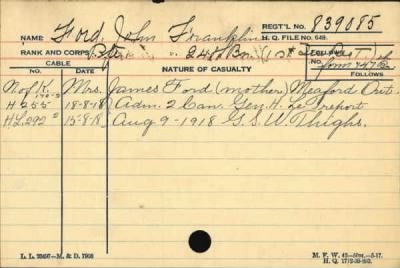 REGT'L NO. 839085
NAME Ford, John Franklin
H. Q. FILE No. 649.
RANK AND CORPS Pte. 248 Bn. (1st
CABLE
NO. DATE NATURE OF CASUALTY FOLLOWS
N of K. Mrs. James Ford (mother) Meaford Ont.
H 255 18-8-18 Adm. 2 Can. Gen. H. Le Treport
HL 292 15-8-18 Aug 9-1918 G.S.W. Thighs.
L. L. M. & D. 1908
M. F. W. 42
H. Q. 1772-39-893.